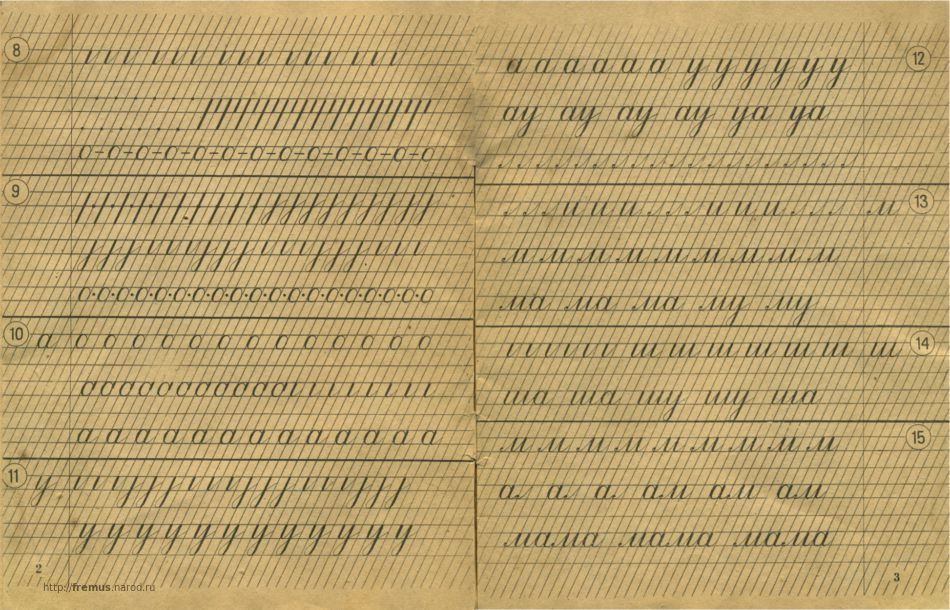 8
ı ı ı ı ı ı ı ı ı ı ı ı ı ı ı
о-о-о-о-о-о-о-о-о-о-о-о-о
9
о·о·о·о·о·о·о·о·о·о·о·о·о·о·о·о·о·о·о
10 а о о о о о о о о о о о о о
а а а а а а а а а а а а а
11 у
у у у у у у у у у у у у
2
http://fremus.narod.ru
12
а а а а а а у у у у у у
ау ау ау ау уа уа
13
и и и и и и м
м м м м м м м м м
ма ма ма му му
14
ш ш ш ш ш ш ш
ша ша шу шу ша
15
м м м м м м м м м
а а а ам ам ам
мама мама мама
3